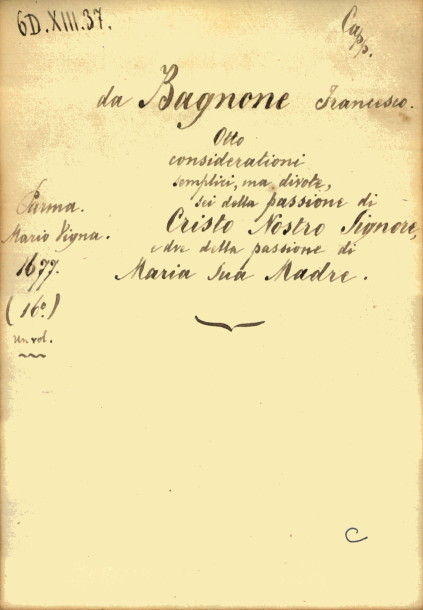 6D.XIII.37.
Capp.
da Bagnone Francesco.
Otto
considerationi
semplici, ma divote,
sei della passione di
Cristo Nostro Signore,
e due della passione di
Maria Sua Madre.
Parma.
Mario Vigna.
1677.
(16º)
un vol.
C